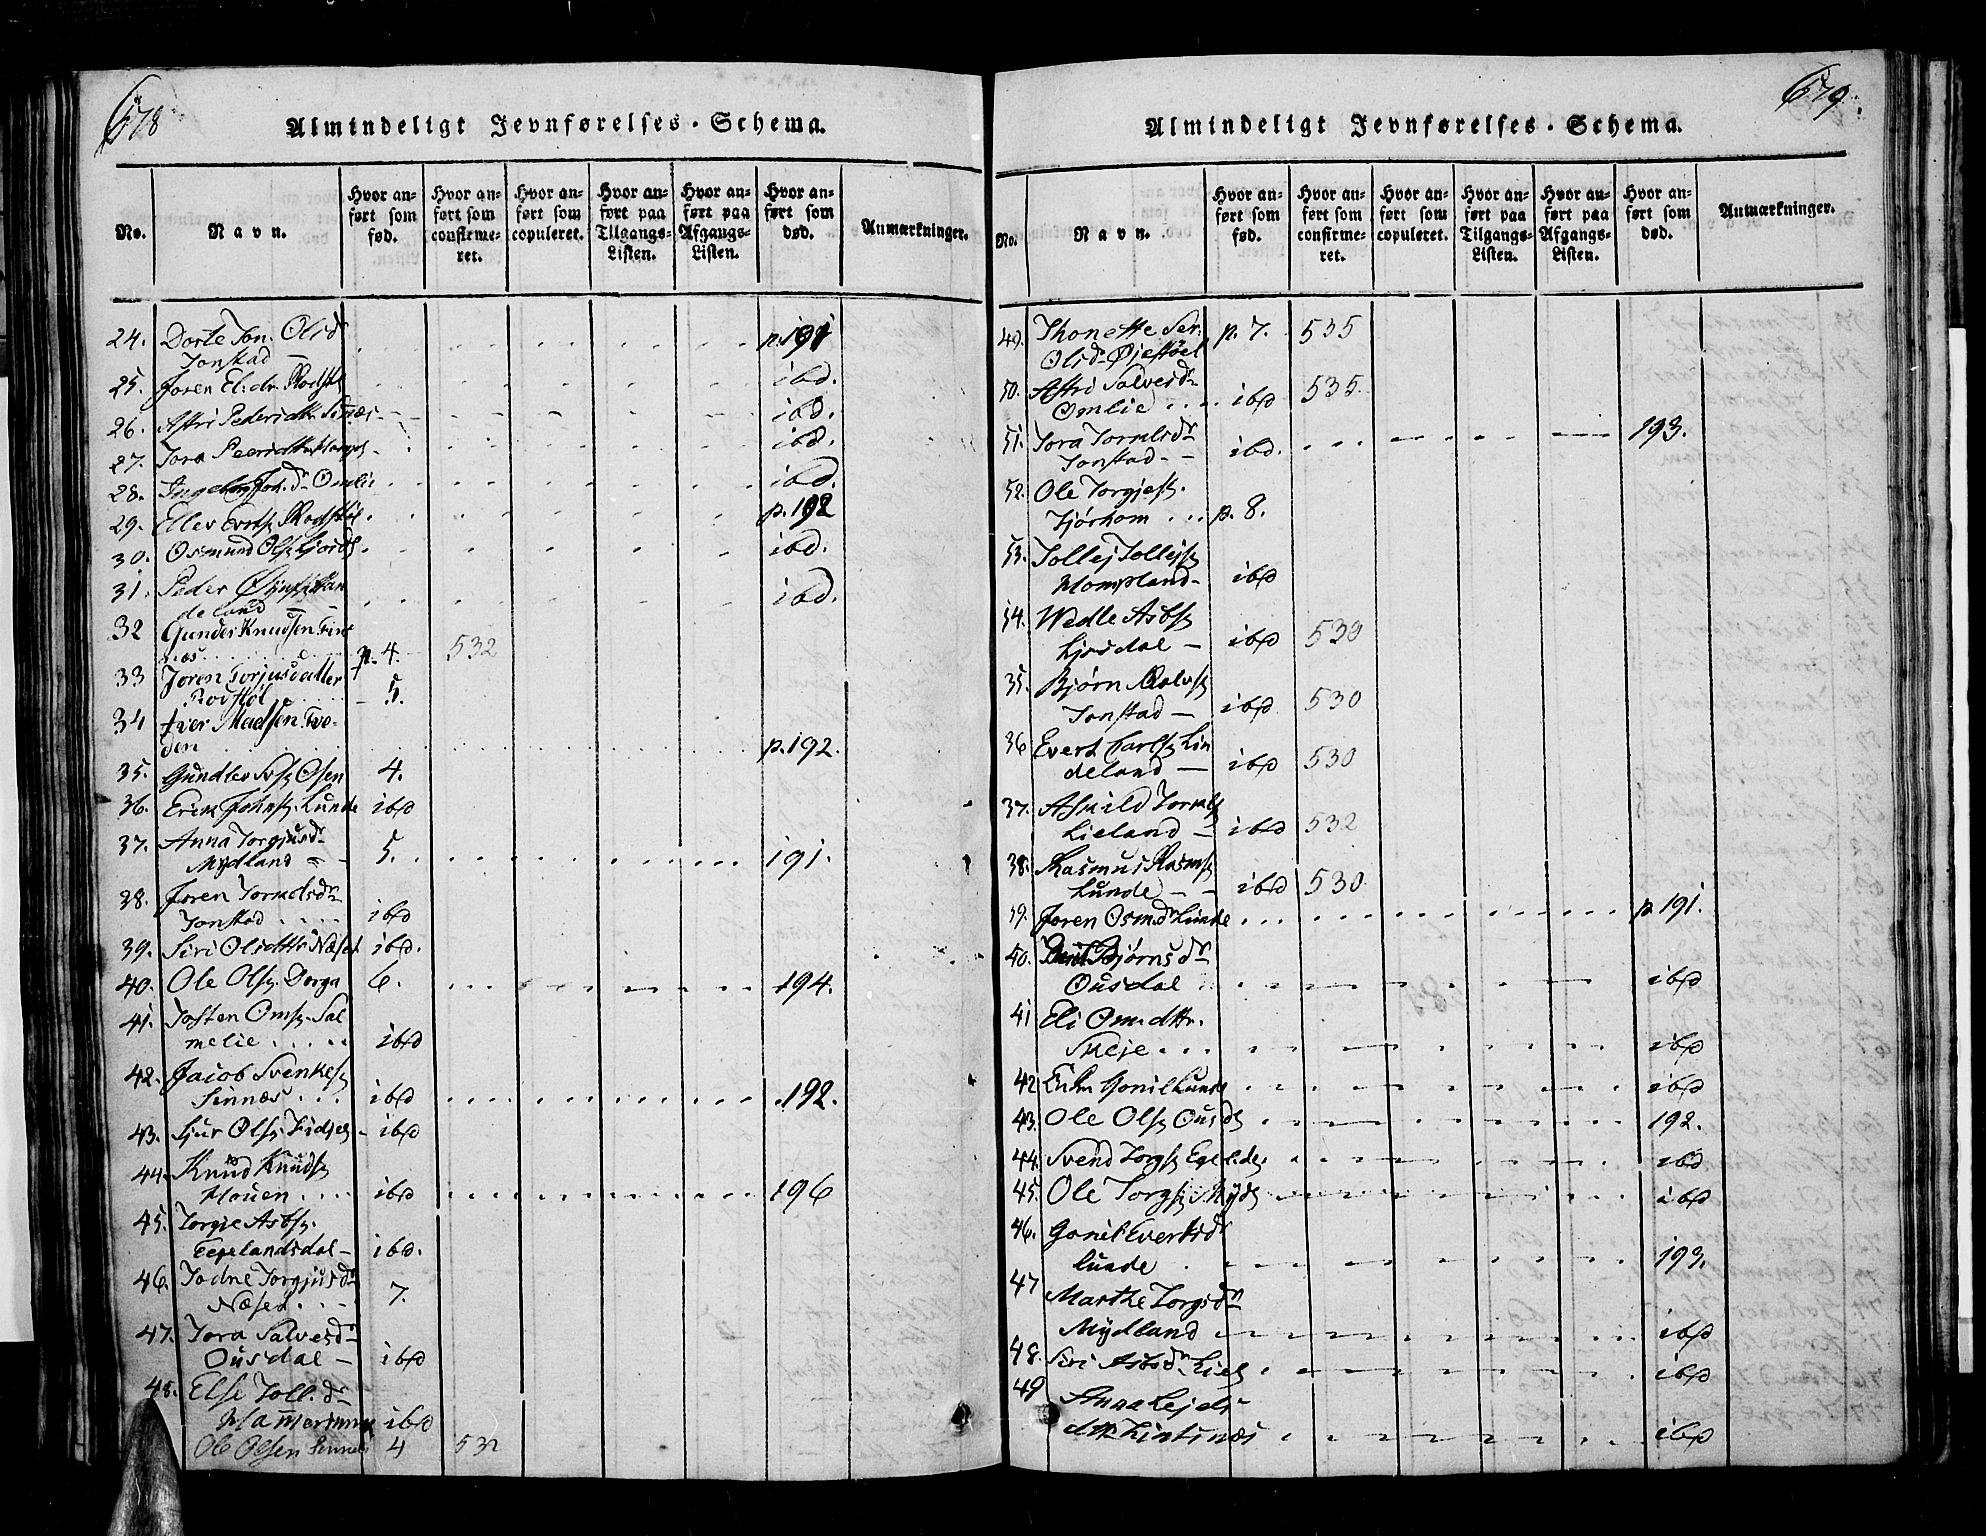 678
Almindeligt Jevnførelses-Schema.
No. Navn. Hvor anført som fød. Hvor anført som confirmeret. Hvor anført som copuleret. Hvor anført paa Tilgangs-Listen. Hvor anført paa Afgangs-Listen. Hvor anført som død. Anmærkninger.
24. Dorte Ton. Olsd
Tonstad p. 191
25. Joren El.dr. ibd.
26. Astri Pedersdtr. Sinnæs ibd.
27. Tora ibd.
28. Ingeborg Joh.dr Omlie ibd.
29. Ellev p. 192
30. Osmund Ols. ibd.
31. Peder
deland ibd.
32 Gunder Knudsen Fint
næs p. 4. 532
33 Joren Torjusdatter
Rodstøl 5.
34 Iver Madsen Tve-
den p. 192.
35. Gundlev Osen 4.
36. Erik Johns. Lunde ibd
37. Anna Torgjusdr
Mydland 5. 191.
38. Joren Tormdsdr
Tonstad ibd
39. Siri Olsdttr Næset ibd.
40. Ole Ols. Dorga 6. 194.
41. Tosten Oms. Sal
melie ibd
42. Jacob Svenkes.
Sinnæs ibd 192.
43. Sjur Ols. Fidje ibd
44. Knud Knuds.
Houen ibd 196
45. Torgie Asbs.
Egelandsdal ibd.
46. Jodne Torgjusdr
Næset 7.
47. Tora Salvesdr
Ousdal ibd
48. Else Toll.dr
ibd
Ole Olsen Sinnes 4 532
679.
Almindeligt Jevnførelses-Schema.
No. Navn. Hvor anført som fød. Hvor anført som confirmeret. Hvor anført som copuleret. Hvor anført paa Tilgangs-Listen. Hvor anført paa Afgangs-Listen. Hvor anført som død. Anmærkninger.
49. Thonette Ser.
Olsdr Øjestøel p. 7. 535
50. Astri Salvesdr
Omlie ibd 535.
51. Tora Tormlsdr
Tonstad ibd. 193.
52. Ole Torgjes.
Tjørhom p. 8.
53. Tollej Tollejs.
Hompland ibd
54. Wedle Asbs.
Ljosdal ibd 530
35. Bjørn
Tonstad ibd 530
36 Evert Carls. Lin
deland ibd 530
37. Askild
Lieland ibd 532
38. Rasmus Rasms.
Lunde ibd 530
39. Joren Osm.dr Lunde p. 191.
40. Bjørnsdr
Ousdal ibd
41 Eli Omdttr.
Skeje ibd
42 Lunde ibd
43. Ole Ols. Ousd. 192.
44. Svend Torgs. ibd
45. Ole Torgs. Myd. ibd
46. Gonil Evertsdr
Lunde 193.
47 Marthe Torgsdr
Mydland ibd
48. Siri Asbsdr ibd
49 Anna
ibd